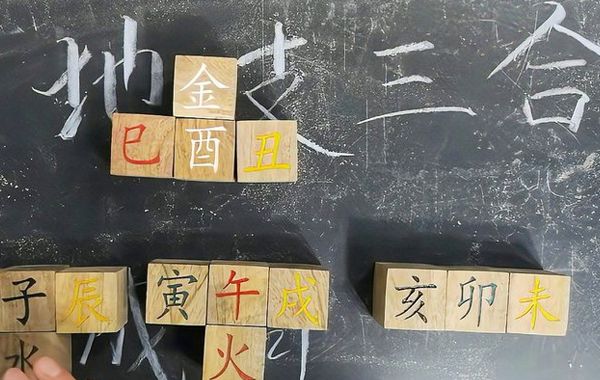 地支三合
金
巳酉丑
子辰
寅午戌
亥卯未
水
火